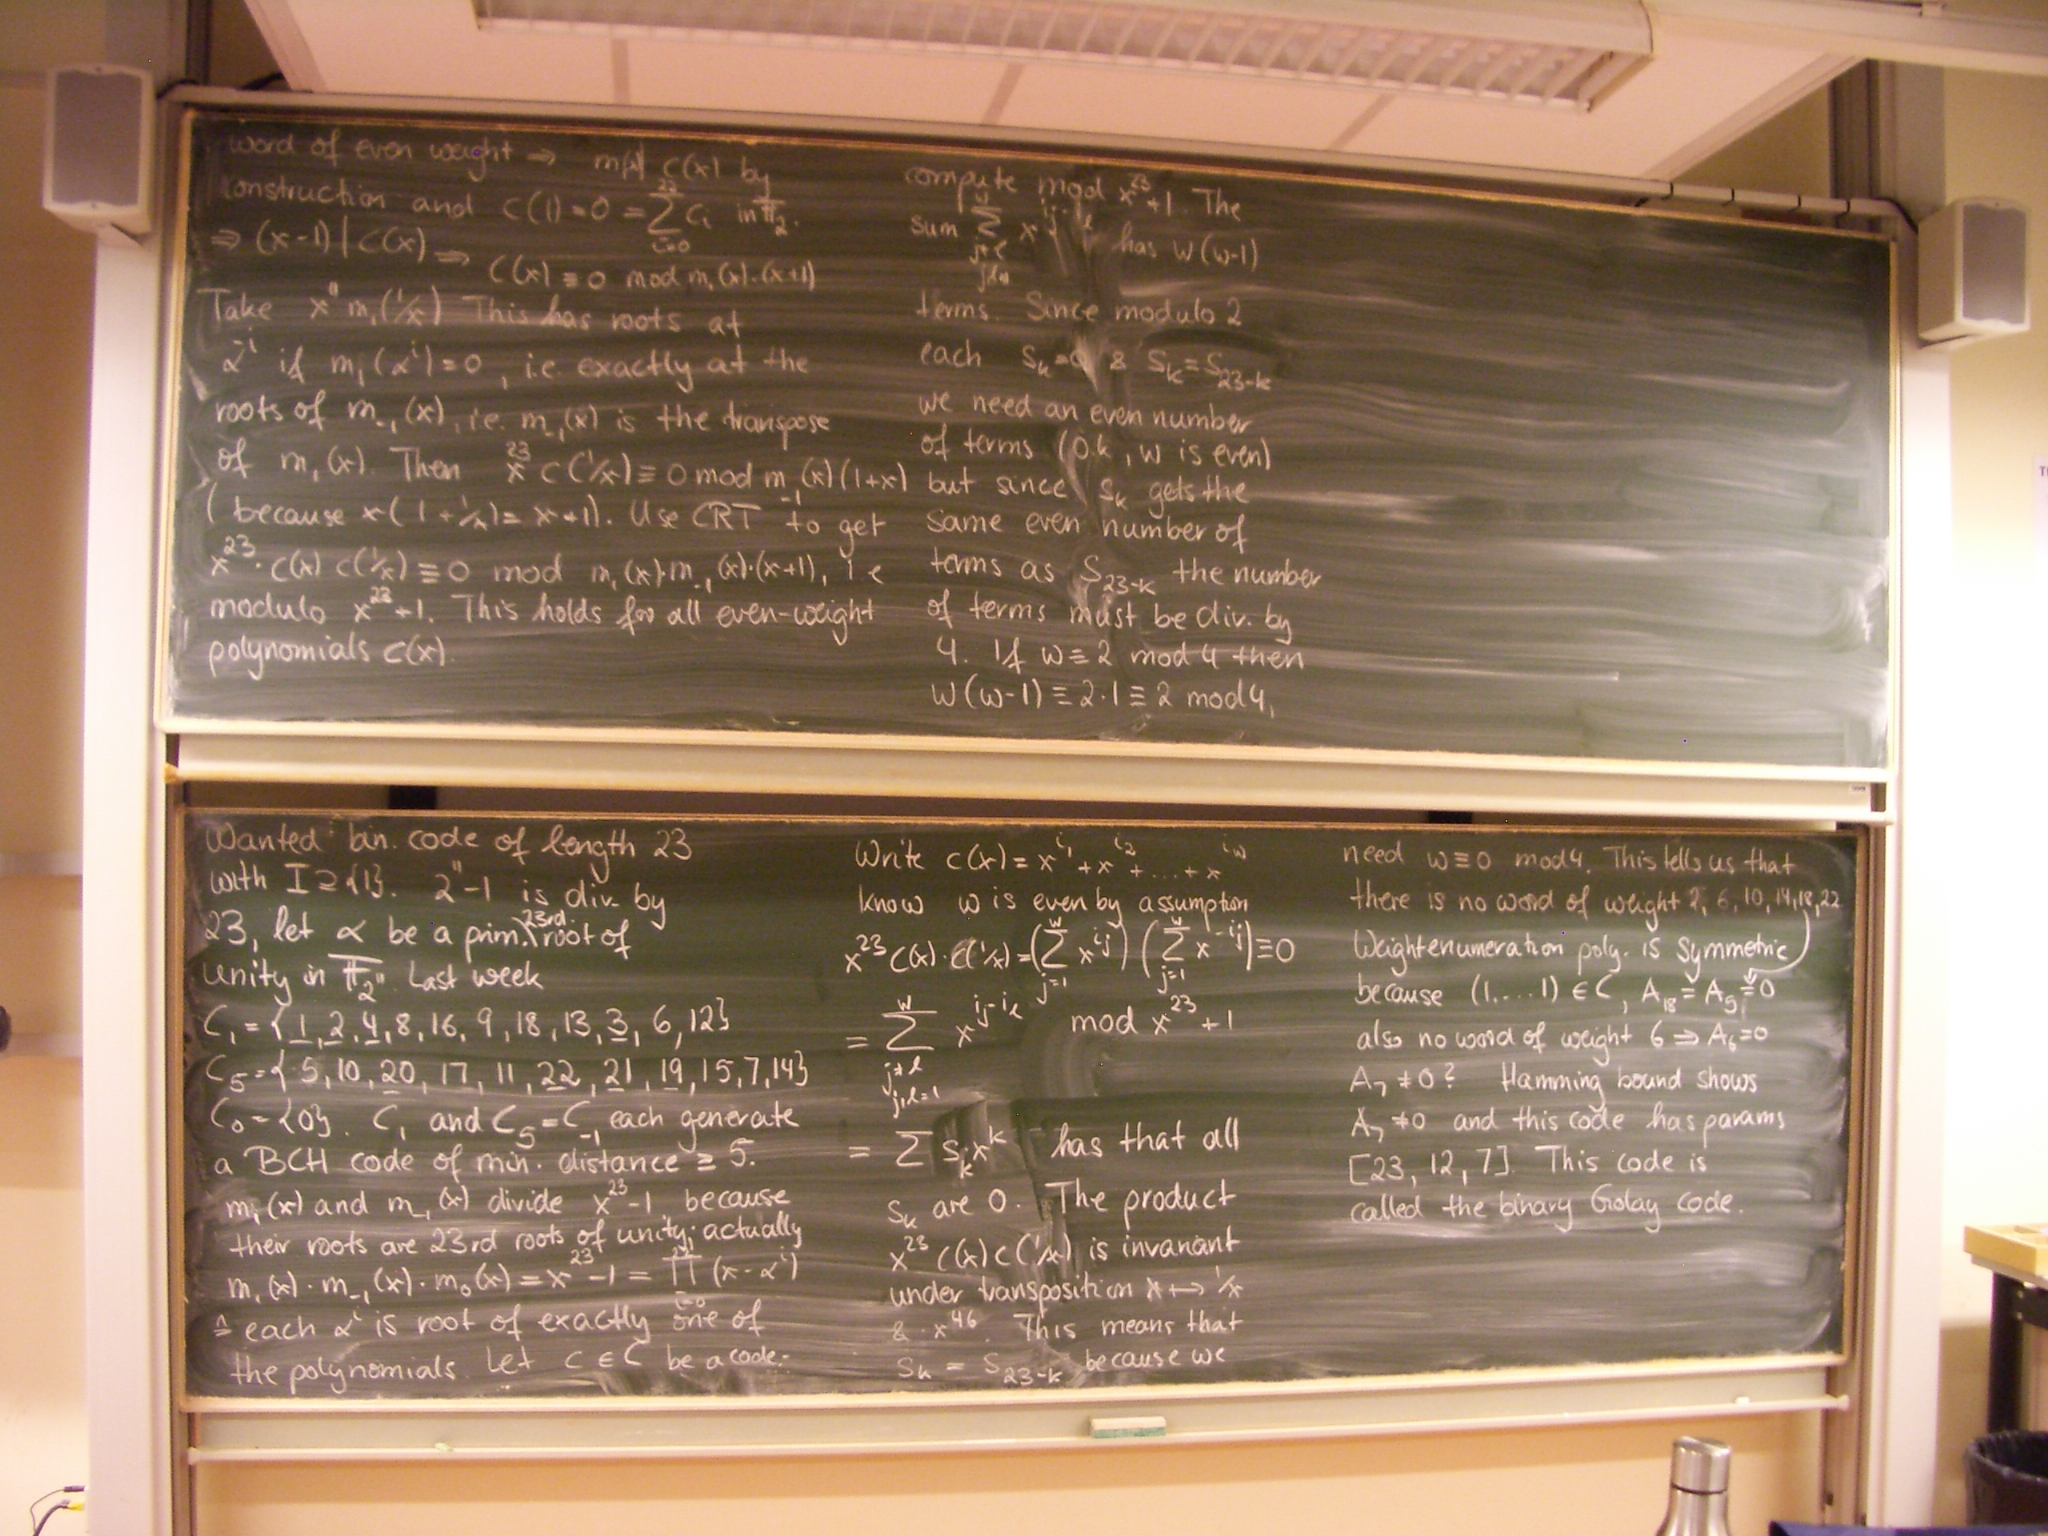 word of even weight ⇒ m₁(x)| c(x) by
construction and c(1)=0=∑_{i=0}^{22} c_i in 𝔽₂.
⇒ (x-1) | c(x) ⇒
c(x) ≡ 0 mod m₁(x)·(x+1)
Take x¹¹ m₁(1/x) This has roots at
α^{-i} if m₁(α^i)=0, i.e. exactly at the
roots of m₋₁(x), i.e. m₋₁(x) is the transpose
of m₁(x). Then x²³ c(1/x) ≡ 0 mod m₋₁(x)(1+x)
(because x(1+1/x)=x+1). Use CRT to get
x²³·c(x) c(1/x) ≡ 0 mod m₁(x)·m₋₁(x)·(x+1), i.e
modulo x²³+1. This holds for all even-weight
polynomials c(x).
compute mod x²³+1. The
sum ∑_{j≠l, j,l=1}^{w} x^{i_j-i_l} has w(w-1)
terms. Since modulo 2
each S_k=0 & S_k=S_{23-k}
we need an even number
of terms (o.k, w is even)
but since S_k gets the
same even number of
terms as S_{23-k} the number
of terms must be div. by
4. If w≡2 mod 4 then
w(w-1) ≡ 2·1 ≡ 2 mod 4,
Wanted: bin. code of length 23
with I ⊇ {1}. 2¹¹-1 is div. by
23, let α be a prim. 23rd root of
unity in 𝔽̄₂. Last week
C₁ = {1, 2, 4, 8, 16, 9, 18, 13, 3, 6, 12}
C₅ = {5, 10, 20, 17, 11, 22, 21, 19, 15, 7, 14}
C₀ = {0}. C₁ and C₅=C₋₁ each generate
a BCH code of min. distance ≥ 5.
m₁(x) and m₋₁(x) divide x²³-1 because
their roots are 23rd roots of unity; actually
m₁(x)·m₋₁(x)·m₀(x) = x²³-1 = ∏_{i=0}^{22} (x-α^i)
≙ each α^i is root of exactly one of
the polynomials. Let c ∈ C be a code-
Write c(x) = x^{i₁} + x^{i₂} + ... + x^{i_w}
know w is even by assumption
x²³ c(x)·c(1/x) = (∑_{j=1}^{w} x^{i_j}) (∑_{j=1}^{w} x^{-i_j}) ≡ 0
= ∑_{j≠l, j,l=1}^{w} x^{i_j-i_l} mod x²³+1
= ∑ S_k x^k has that all
S_k are 0. The product
x²³ c(x) c(1/x) is invariant
under transposition x ↦ 1/x
& ·x⁴⁶. This means that
S_k = S_{23-k} because we
need w≡0 mod 4. This tells us that
there is no word of weight 2, 6, 10, 14, 18, 22
Weightenumeration poly. is symmetric
because (1,...,1) ∈ C, A₁₈ = A₅ = 0
also no word of weight 6 ⇒ A₆=0
A₇ ≠ 0? Hamming bound shows
A₇ ≠ 0 and this code has params
[23, 12, 7]. This code is
called the binary Golay code.